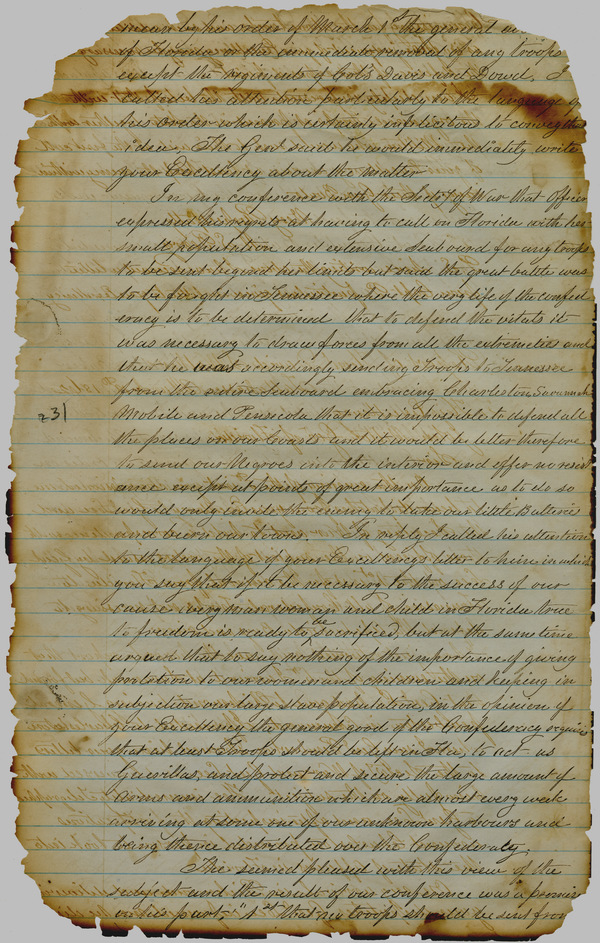 mean by his order of March 1st the general
of Florida or the immediate removal of any troops
except the regiments of Cols Davis and Dowd. I
called his attention particularly to the language of
his order which is certainly infelicitous to convey the
idea. The Genl said he would immediately write
your Excellency about the matter
In my conference with the Secty of War that officer
expressed his regrets at having to call on Florida with her
small population and extensive Seaboard for any troops
to be sent beyond her limits but said the great battle was
to be fought in Tennessee where the very life of the confed
eracy is to be determined that to defend the vitals it
was necessary to draw forces from all the extremeties and
that he was accordingly sending Troops to Tennessee
from the entire Seaboard embracing Charleston, Savannah
231
Mobile and Pensicola that it is impossible to defend all
the places on our Coasts and it would be better therefore
to send our Negroes into the interior and offer no resist
ance except at points of great importance as to do so
would only invite the enemy to take our little Batteries
and burn our towns. In reply I called his attention
to the language of your Excellencys letter to him in which
you say that if it be necessary to the success of our
cause every man woman and child in Florida true
to freedom is ready to be sacrificed, but at the same time
argued that to say nothing of the importance of giving
protation to our women and children and keeping in
subjection our large slave population, in the opinion of
your Excellency the general good of the Confederacy requires
that at least Troops should be left in Fla, to act as
Guerillas, and protect and secure the large amount of
arms and ammunition which are almost every week
arriving at some one of our unknown harbours and
being thence distributed over the Confederacy.
The seemed pleased with this view of the
subject and the result of our conference was a promise
on his part "1st that no troops should be sent from